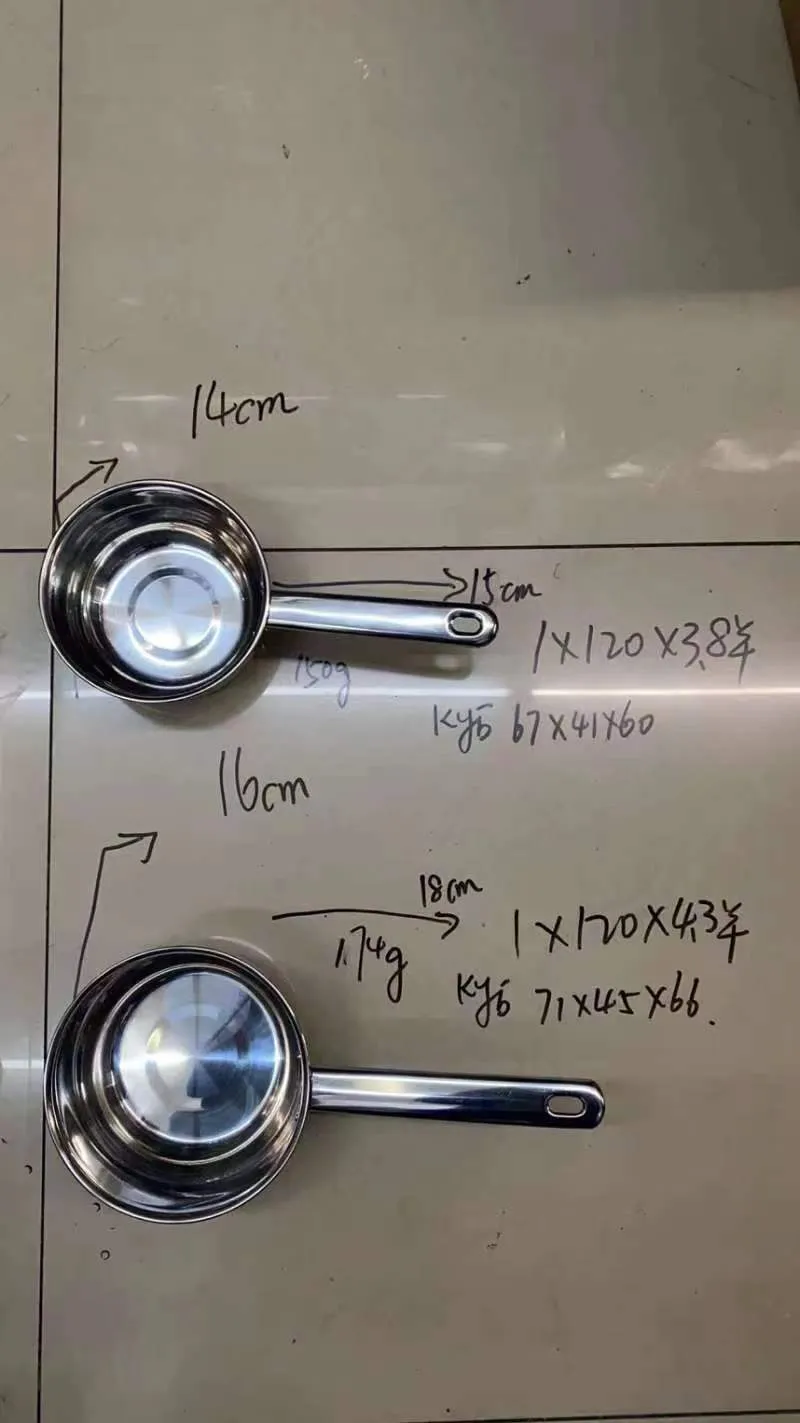 14cm
15cm
150g
1×120×3.8¥
Куб 67×41×60
16cm
18cm
174g
1×120×4.3¥
Куб 71×45×66.